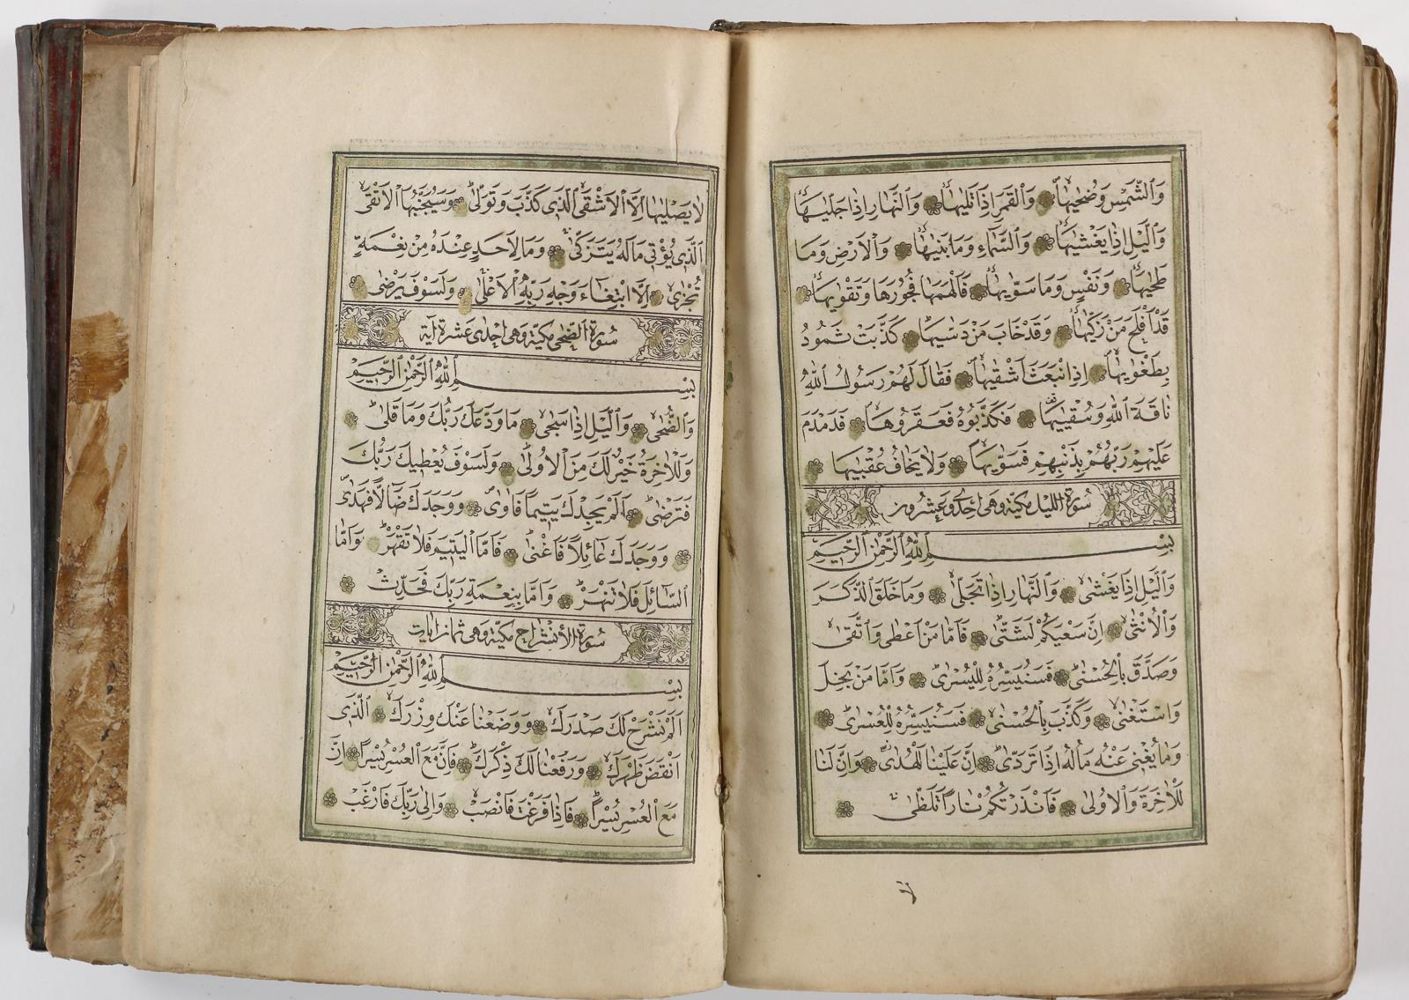 وَالشَّمْسِ وَضُحٰيهَا وَالْقَمَرِ اِذَا تَلٰيهَا وَالنَّهَارِ اِذَا جَلّٰيهَا
وَالَّيْلِ اِذَا يَغْشٰيهَا وَالسَّمَاءِ وَمَا بَنٰيهَا وَالْاَرْضِ وَمَا
طَحٰيهَا وَنَفْسٍ وَمَا سَوّٰيهَا فَاَلْهَمَهَا فُجُورَهَا وَتَقْوٰيهَا
قَدْ اَفْلَحَ مَنْ زَكّٰيهَا وَقَدْ خَابَ مَنْ دَسّٰيهَا كَذَّبَتْ ثَمُودُ
بِطَغْوٰيهَا اِذِ انْبَعَثَ اَشْقٰيهَا فَقَالَ لَهُمْ رَسُولُ اللّٰهِ
نَاقَةَ اللّٰهِ وَسُقْيٰيهَا فَكَذَّبُوهُ فَعَقَرُوهَا فَدَمْدَمَ
عَلَيْهِمْ رَبُّهُمْ بِذَنْبِهِمْ فَسَوّٰيهَا وَلَا يَخَافُ عُقْبٰيهَا
سُورَة الليل مكية وهى احدى وعشرون
بِسْمِ اللّٰهِ الرَّحْمٰنِ الرَّحِيمِ
وَالَّيْلِ اِذَا يَغْشٰى وَالنَّهَارِ اِذَا تَجَلّٰى وَمَا خَلَقَ الذَّكَرَ
وَالْاُنْثٰى اِنَّ سَعْيَكُمْ لَشَتّٰى فَاَمَّا مَنْ اَعْطٰى وَاتَّقٰى
وَصَدَّقَ بِالْحُسْنٰى فَسَنُيَسِّرُهُ لِلْيُسْرٰى وَاَمَّا مَنْ بَخِلَ
وَاسْتَغْنٰى وَكَذَّبَ بِالْحُسْنٰى فَسَنُيَسِّرُهُ لِلْعُسْرٰى
وَمَا يُغْنِى عَنْهُ مَالُهُ اِذَا تَرَدّٰى اِنَّ عَلَيْنَا لَلْهُدٰى وَاِنَّ لَنَا
لَلْاٰخِرَةَ وَالْاُولٰى فَاَنْذَرْتُكُمْ نَارًا تَلَظّٰى
لَا يَصْلٰيهَا اِلَّا الْاَشْقَى الَّذِى كَذَّبَ وَتَوَلّٰى وَسَيُجَنَّبُهَا الْاَتْقَى
اَلَّذِى يُؤْتِى مَالَهُ يَتَزَكّٰى وَمَا لِاَحَدٍ عِنْدَهُ مِنْ نِعْمَةٍ
تُجْزٰى اِلَّا ابْتِغَاءَ وَجْهِ رَبِّهِ الْاَعْلٰى وَلَسَوْفَ يَرْضٰى
سُورَة الضحى مكية وهى احدى عشرة آية
بِسْمِ اللّٰهِ الرَّحْمٰنِ الرَّحِيمِ
وَالضُّحٰى وَالَّيْلِ اِذَا سَجٰى مَا وَدَّعَكَ رَبُّكَ وَمَا قَلٰى
وَلَلْاٰخِرَةُ خَيْرٌ لَكَ مِنَ الْاُولٰى وَلَسَوْفَ يُعْطِيكَ رَبُّكَ
فَتَرْضٰى اَلَمْ يَجِدْكَ يَتِيمًا فَاٰوٰى وَوَجَدَكَ ضَالًّا فَهَدٰى
وَوَجَدَكَ عَائِلًا فَاَغْنٰى فَاَمَّا الْيَتِيمَ فَلَا تَقْهَرْ وَاَمَّا
السَّائِلَ فَلَا تَنْهَرْ وَاَمَّا بِنِعْمَةِ رَبِّكَ فَحَدِّثْ
سُورَة الانشراح مكية وهى ثمان ايات
بِسْمِ اللّٰهِ الرَّحْمٰنِ الرَّحِيمِ
اَلَمْ نَشْرَحْ لَكَ صَدْرَكَ وَوَضَعْنَا عَنْكَ وِزْرَكَ اَلَّذِى
اَنْقَضَ ظَهْرَكَ وَرَفَعْنَا لَكَ ذِكْرَكَ فَاِنَّ مَعَ الْعُسْرِ يُسْرًا اِنَّ
مَعَ الْعُسْرِ يُسْرًا فَاِذَا فَرَغْتَ فَانْصَبْ وَاِلٰى رَبِّكَ فَارْغَبْ